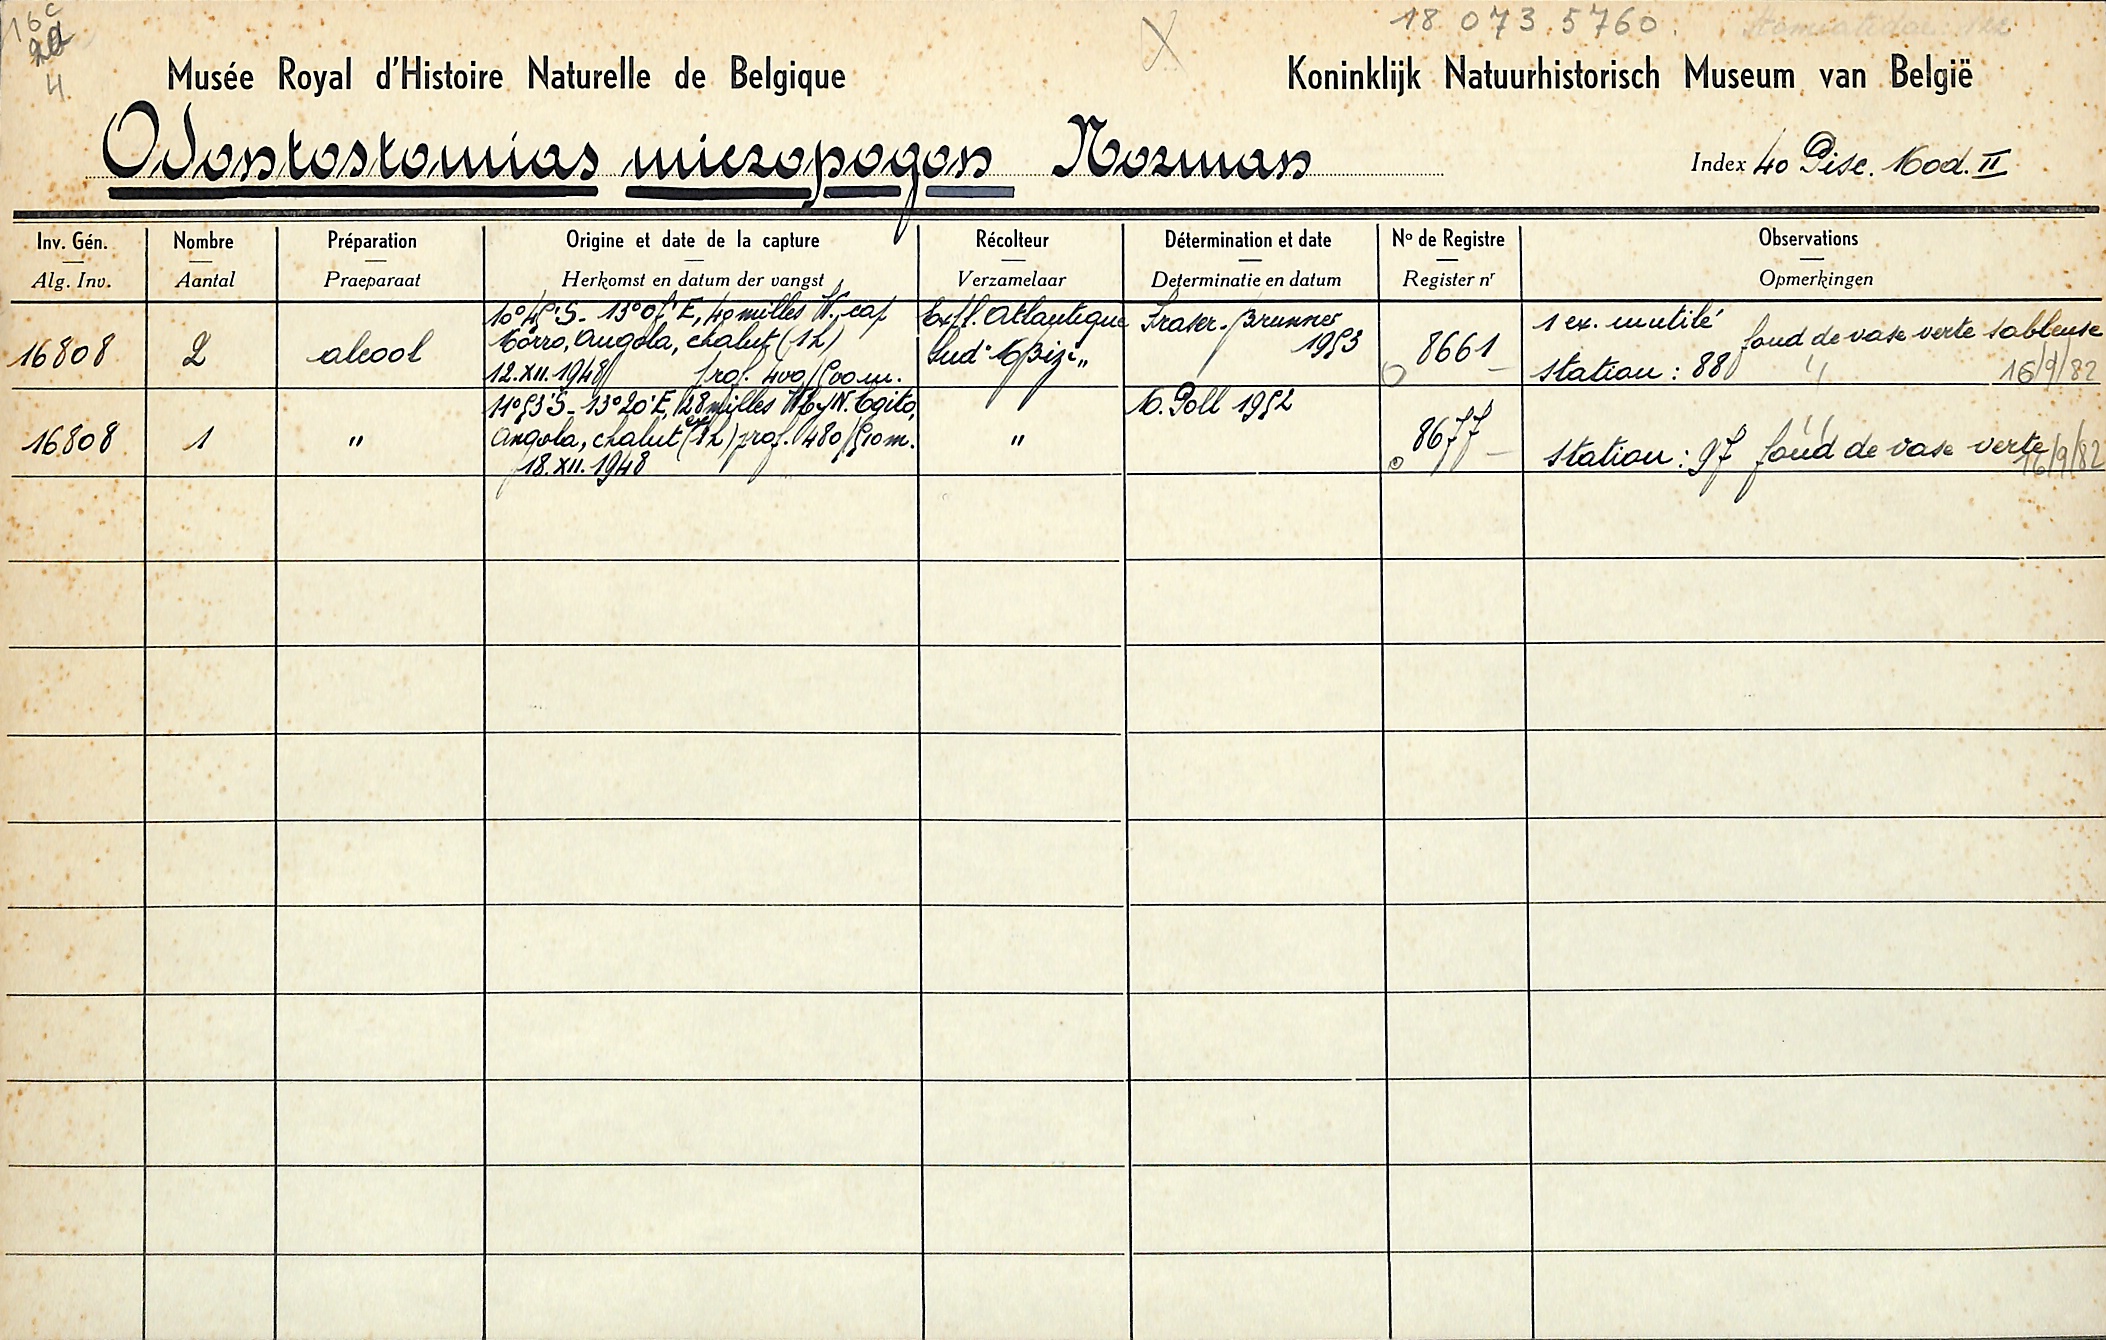 16c
4
18 073.5760.
Stomiatidae 122
Musée Royal d'Histoire Naturelle de Belgique
Koninklijk Natuurhistorisch Museum van België
Odontostomias micropogon Norman
Index 40 Pisc. Mod. II
Inv. Gén. Nombre Préparation Origine et date de la capture Récolteur Détermination et date No de Registre Observations
Alg. Inv. Aantal Praeparaat Herkomst en datum der vangst Verzamelaar Determinatie en datum Register nr Opmerkingen
10°45'S - 13°07'E, 40 milles W. cap Expl. Atlantique Fraser-Brunner 1 ex. mutilé fond de vase verte sableuse
16808 2 alcool Morro, Angola, chalut (1h) Sud "Mbizi" 1953 8661
12.XII.1948 prof. 400/500m. station : 88 16/9/82
11°53'S - 13°20'E, 28 milles WbyN. Egito, M. Poll 1952
16808 1 " Angola, chalut (1h) prof. 480/510m. " 8677 station : 97 fond de vase verte
18.XII.1948 16/9/82